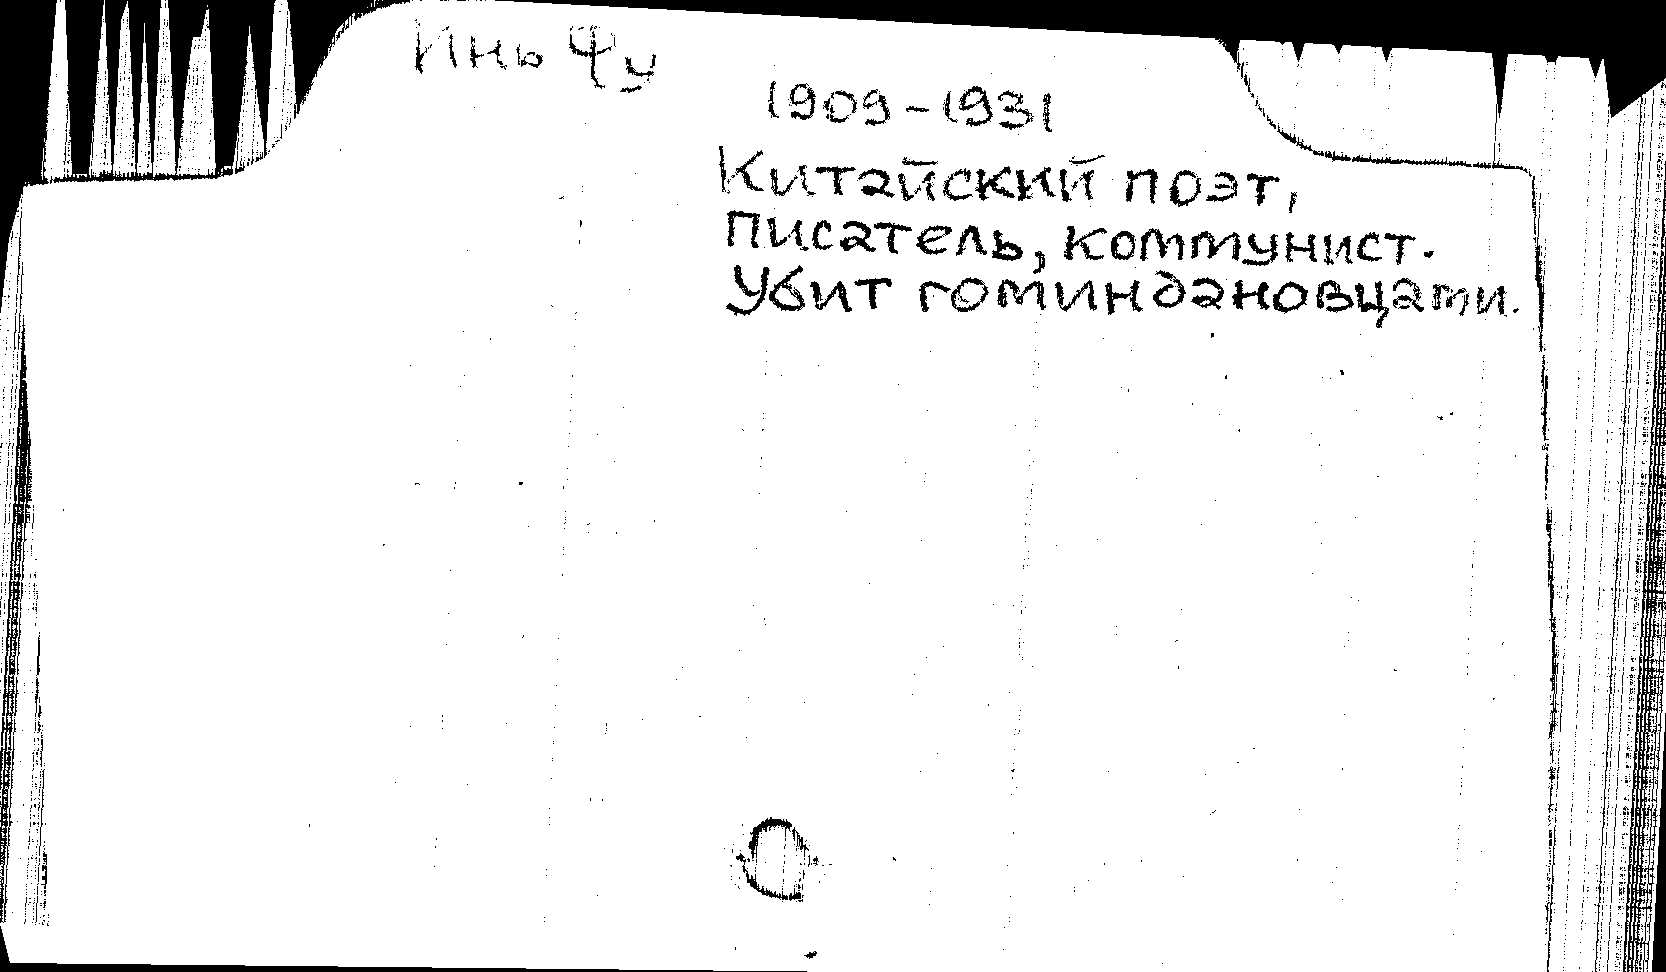 Инь Фу
1909-1931
Китайский поэт,
писатель, коммунист.
Убит гоминдановцами.